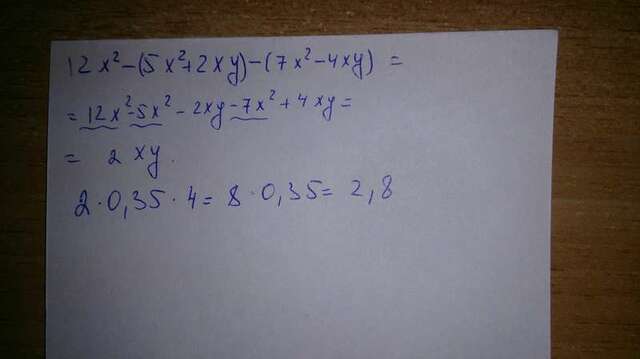 12x²-(5x²+2xy)-(7x²-4xy) =
= 12x²-5x²-2xy-7x²+4xy=
= 2xy.
2·0,35·4=8·0,35=2,8